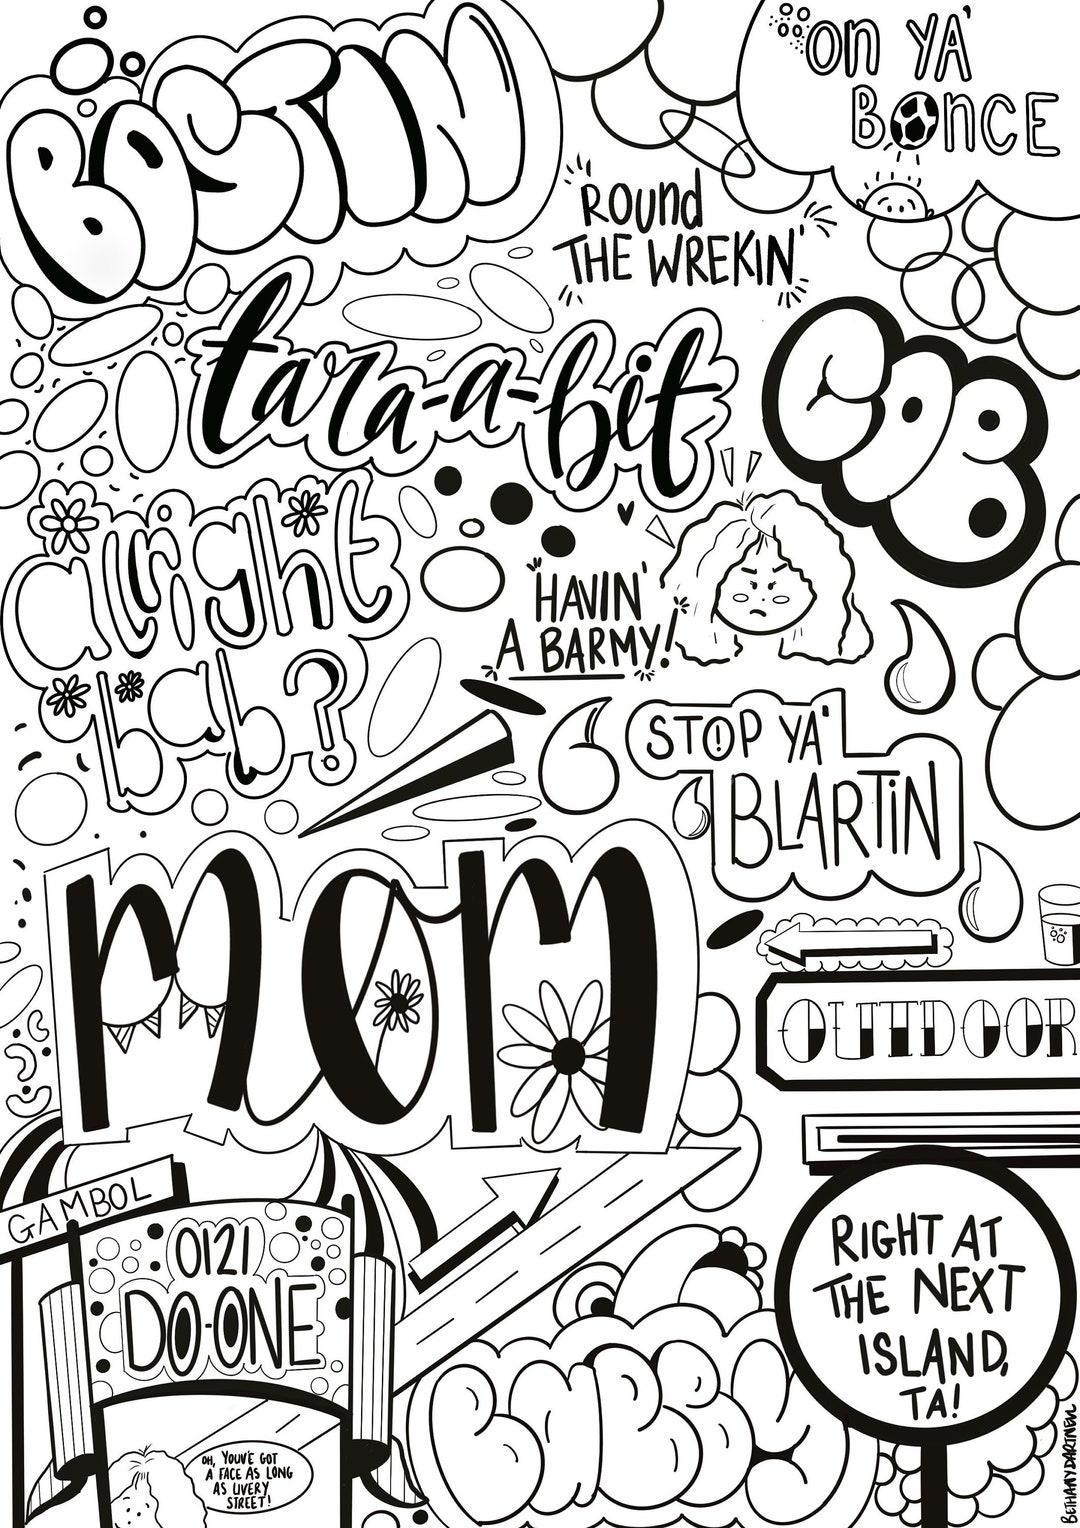 BOSTIN
on YA'
BonCE
'Round
THE WREKIN'
tara-a-bit
COB
alright
bab?
"HAVIN'
A BARMY!
STOP YA'
BLARTiN
mom
OUTDOOR
GAMBOL
0121
DO-ONE
RIGHT AT
THE NEXT
ISLAND,
TA!
BABBY
OH, YOUV'E GOT
A FACE AS LONG
AS LIVERY
STREET!
BETHANY DARTNELL